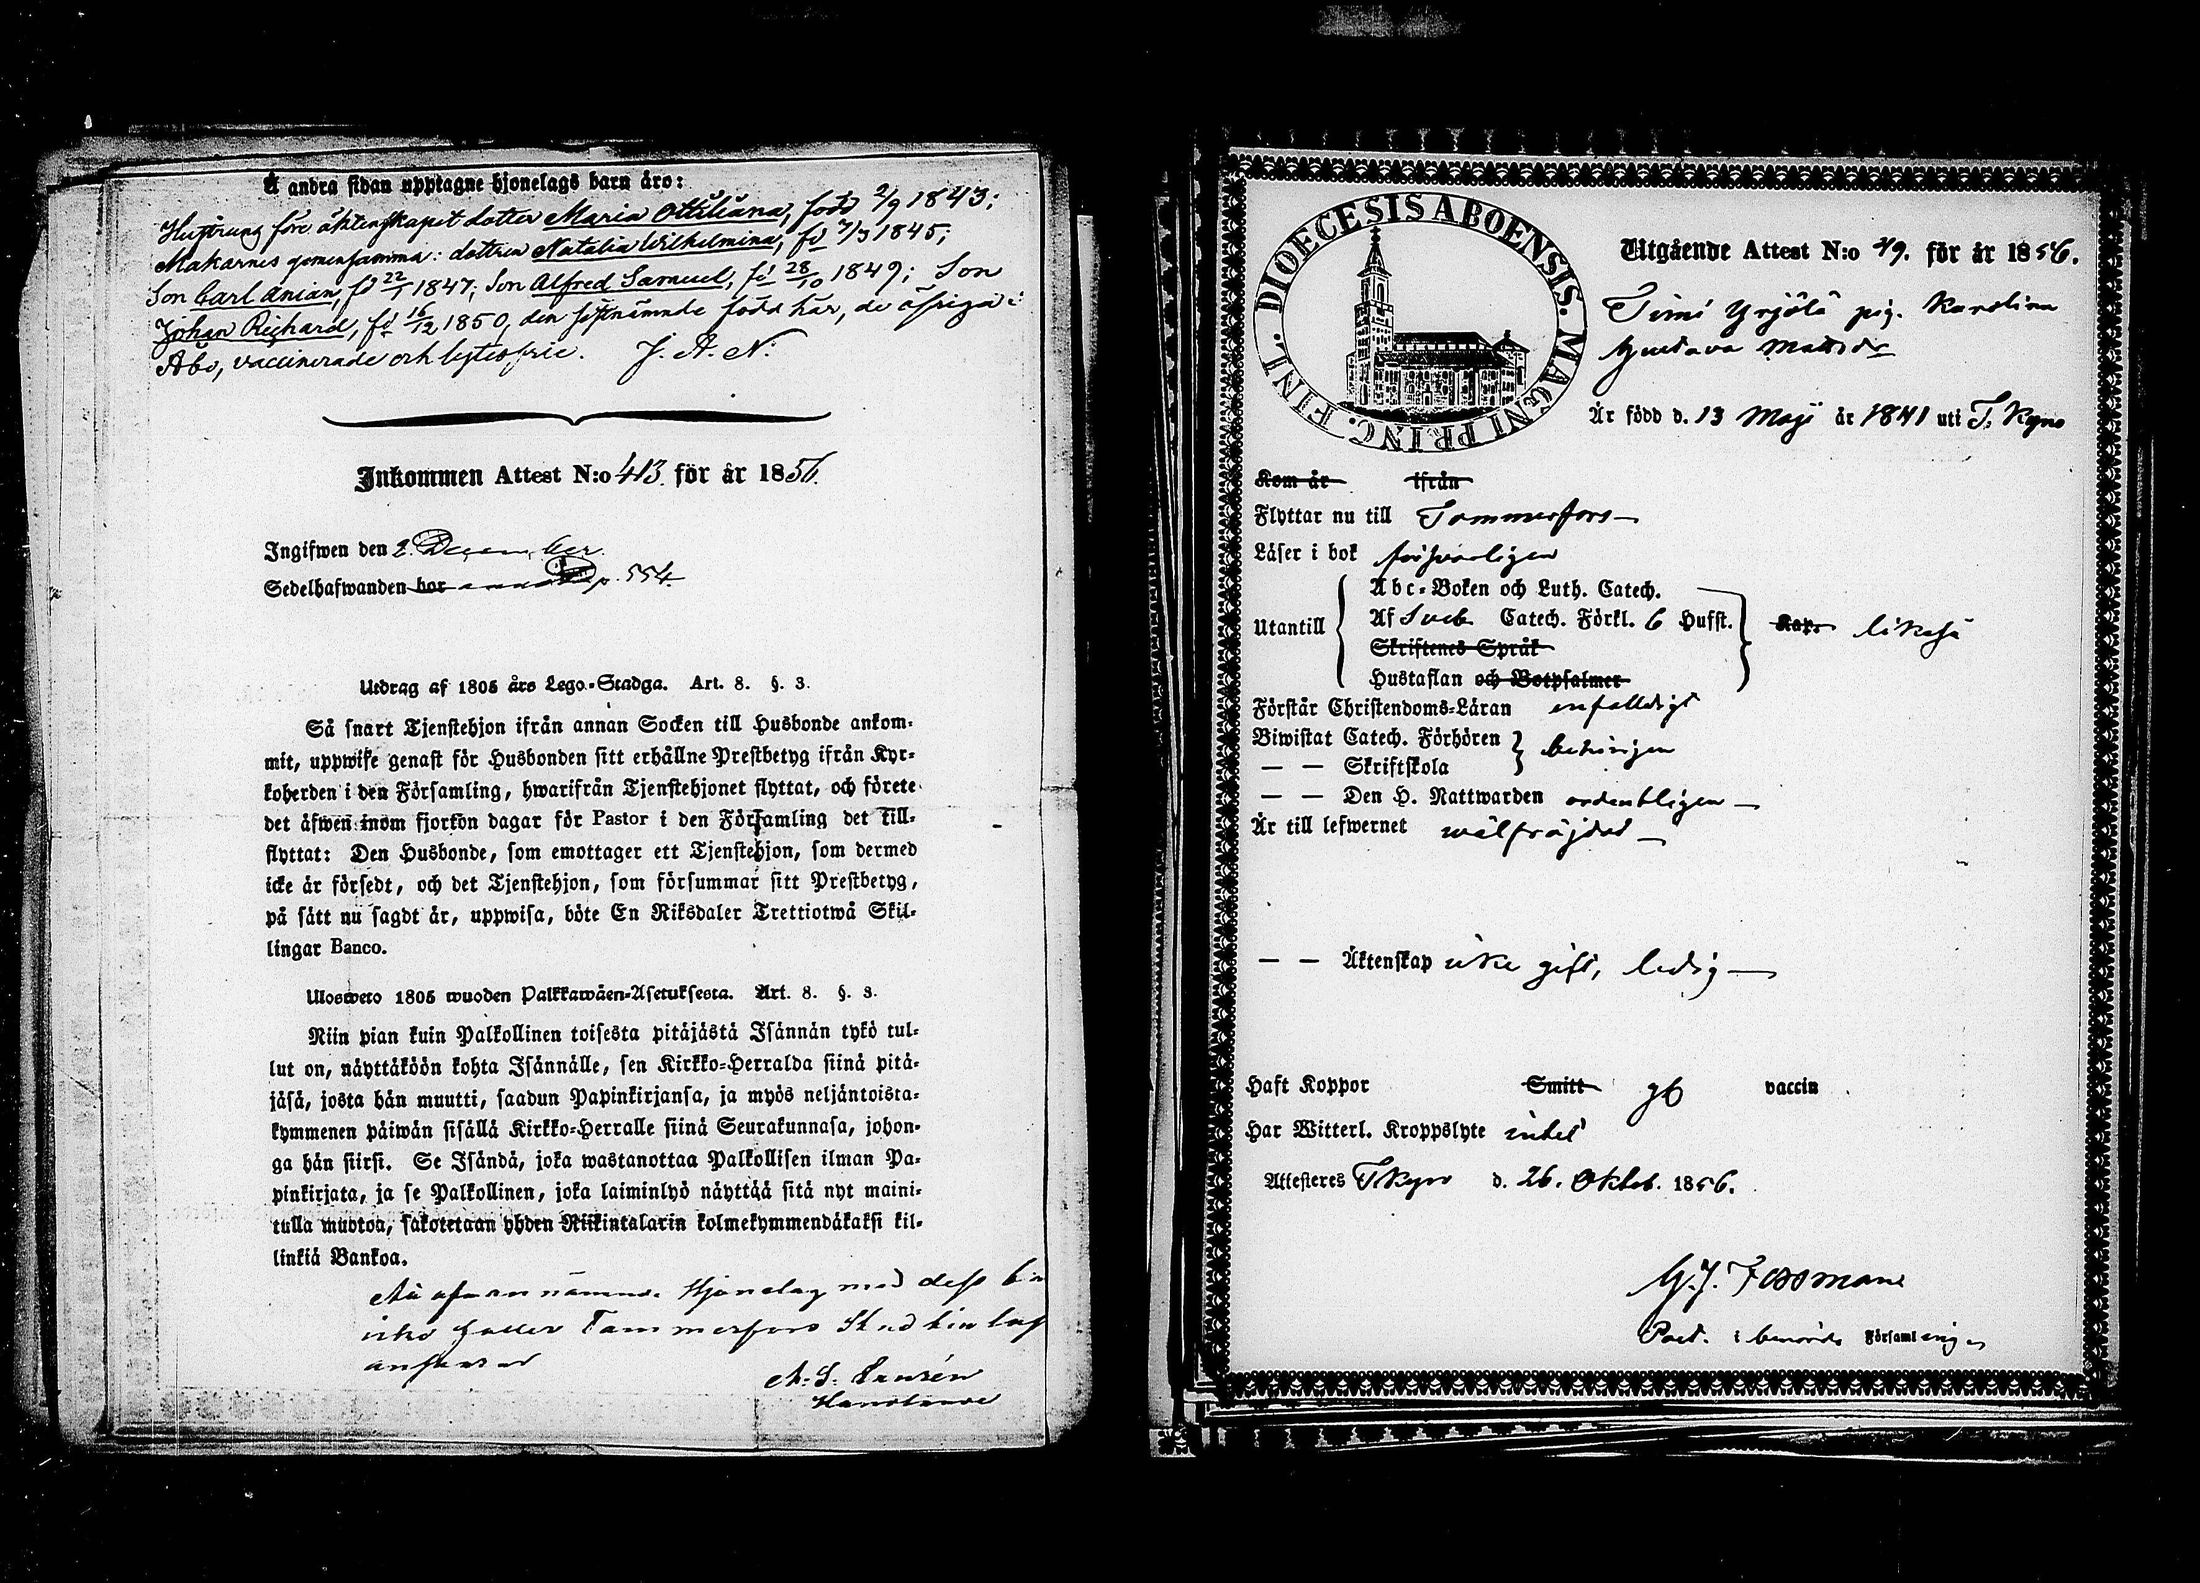 Å andra sidan upptagne hjonelags barn äro:
Hustrung före äktenskapet dotter Maria Ottiliana, född 2/9 1843;
Makarnes gemensamma: dottren Natalia Wilhelmina, fd 7/3 1845;
Son Carl Anian, fd 22/1 1847; Son Alfred Samuel, fd 28/10 1849; Son
Johan Richard, fd 16/12 1850, den sistnämnde född här, de öfriga i
Åbo, vaccinerade och lytesfrie. J. A. N.
Inkommen Attest N:o 413. för år 1856.
Ingifwen den 2. December.
Sedelhafwanden bor p. 554.
Utdrag af 1805 års Lego-Stadga. Art. 8. §. 3.
Så snart Tjenstehjon ifrån annan Socken till Husbonde ankom-
mit, uppwise genast för Husbonden sitt erhållne Prestbetyg ifrån Kyr-
koherden i den Församling, hwarifrån Tjenstehjonet flyttat, och förete
det äfwen inom fjorton dagar för Pastor i den Församling det till-
flyttat: Den Husbonde, som emottager ett Tjenstehjon, som dermed
icke är försedt, och det Tjenstehjon, som försummar sitt Prestbetyg,
på sätt nu sagdt är, uppwisa, böte En Riksdaler Trettiotwå Skil-
lingar Banco.
Ulosweto 1805 wuoden Palkkawäen-Asetuksesta. Art. 8. §. 3.
Niin pian kuin Palkollinen toisesta pitäjästä Isännän tykö tul-
lut on, näyttäköön kohta Isännälle, sen Kirkko-Herralda siinä pitä-
jäsä, josta hän muutti, saadun Papinkirjansa, ja myös neljäntoista-
kymmenen päiwän sisällä Kirkko-Herralle siinä Seurakunnasa, johon-
ga hän siirsi. Se Isändä, joka wastanottaa Palkollisen ilman Pa-
pinkirjata, ja se Palkollinen, joka laiminlyö näyttää sitä nyt maini-
tulla muotoa, sakotetaan yhden Riikintalarin kolmekymmendäkaksi kil-
linkiä Bankoa.
nämnde Hjonelag med dess
Tammerfors Stad
ansvar
A. S.
DIOECESIS ABOENSIS. MAGNI PRINC. FINL.
Utgående Attest N:o 49. för år 1856.
Timi Yrjölä pig. Karolina
Gustava Mattsdr
Är född d. 13 Maji år 1841 uti T. Kyro
Kom år ifrån
Flyttar nu till Tammerfors
Läser i bok försvarligen
Utantill
Abc-Boken och Luth. Catech.
Af Sveb Catech. Förkl. 6 Hufst. Kap. likaså
Skriftenes Språk
Hustaflan och Botpsalmer
Förstår Christendoms-Läran enfalldigt
Biwistat Catech. Förhören behörigen
— — Skriftskola
— — Den H. Nattwarden ordentligen
Är till lefwernet wälfräjdad
— — Äktenskap icke gift, ledig
Haft Koppor Smitt gb vaccin
Har Witterl. Kroppslyte intet
Attesteres T. Kyro d. 26. Oktob. 1856.
G. J. Fossman
Past. i berörde Församlingen